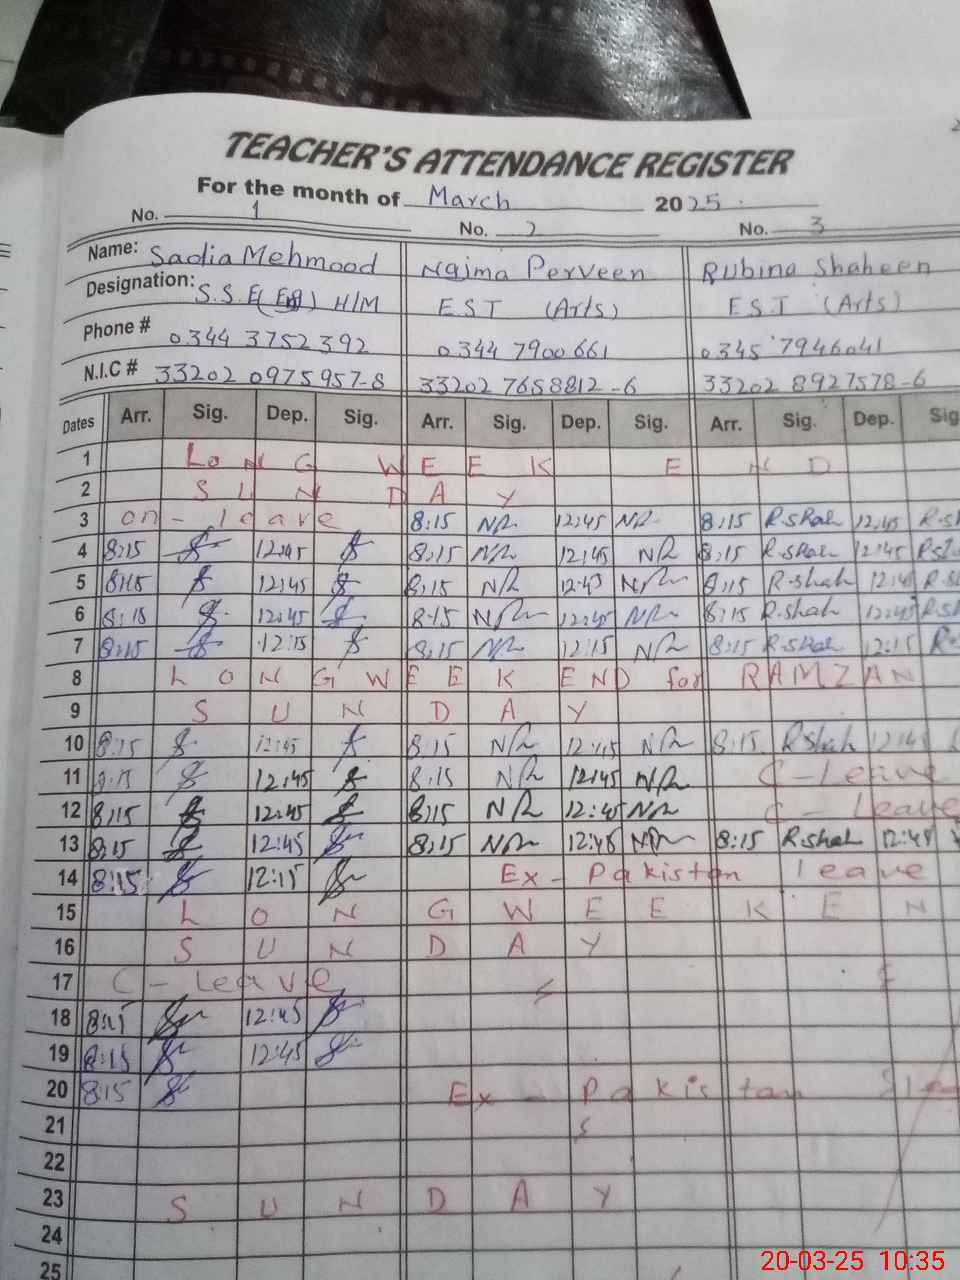 TEACHER'S ATTENDANCE REGISTER
For the month of March 2025
No. 1 No. 2 No. 3
Name: Sadia Mehmood Najma Perveen Rubina Shaheen
Designation: S.S.E( ) H/M EST (Arts) EST (Arts)
Phone # 0344 3752392 0344 7900661 0345 7946041
N.I.C # 33202 0975957-8 33202 7658812-6 33202 8927578-6
Dates Arr. Sig. Dep. Sig. Arr. Sig. Dep. Sig. Arr. Sig. Dep. Sig
1 LONG WEEK END
2 SUNDAY
3 on-leave 8:15 12:45 8:15 R.shah 12:45
4 8:15 12:45 8:15 12:45 8:15 R.shah 12:45
5 8:15 12:45 8:15 12:45 8:15 R.shah 12:45
6 8:15 12:45 8:15 12:45 8:15 R.shah 12:45
7 8:15 12:15 8:15 12:15 8:15 R.shah 12:15
8 LONG WEEK END for RAMZAN
9 SUNDAY
10 8:15 12:45 8:15 12:45 8:15 R.shah 12:45
11 8:15 12:45 8:15 12:45 C-Leave
12 8:15 12:45 8:15 12:45 C-Leave
13 8:15 12:45 8:15 12:45 8:15 R.shah 12:45
14 8:15 12:15 Ex-Pakistan leave
15 LONG WEEKEN
16 SUNDAY
17 C-leave
18 8:15 12:45
19 8:15 12:45
20 8:15 Ex-Pakistan
21
22
23 SUNDAY
24
25
20-03-25 10:35